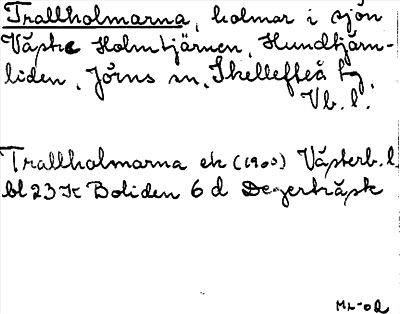 Trallholmarna, holmar i sjön
Västc Holmtjärnen, Hundtjärn-
liden, Jörns sn, Skellefteå tg,
Vb. l.
Trallholmarna ek (1900) Västerb. l.
bl 23 K Boliden 6 d Degerträsk